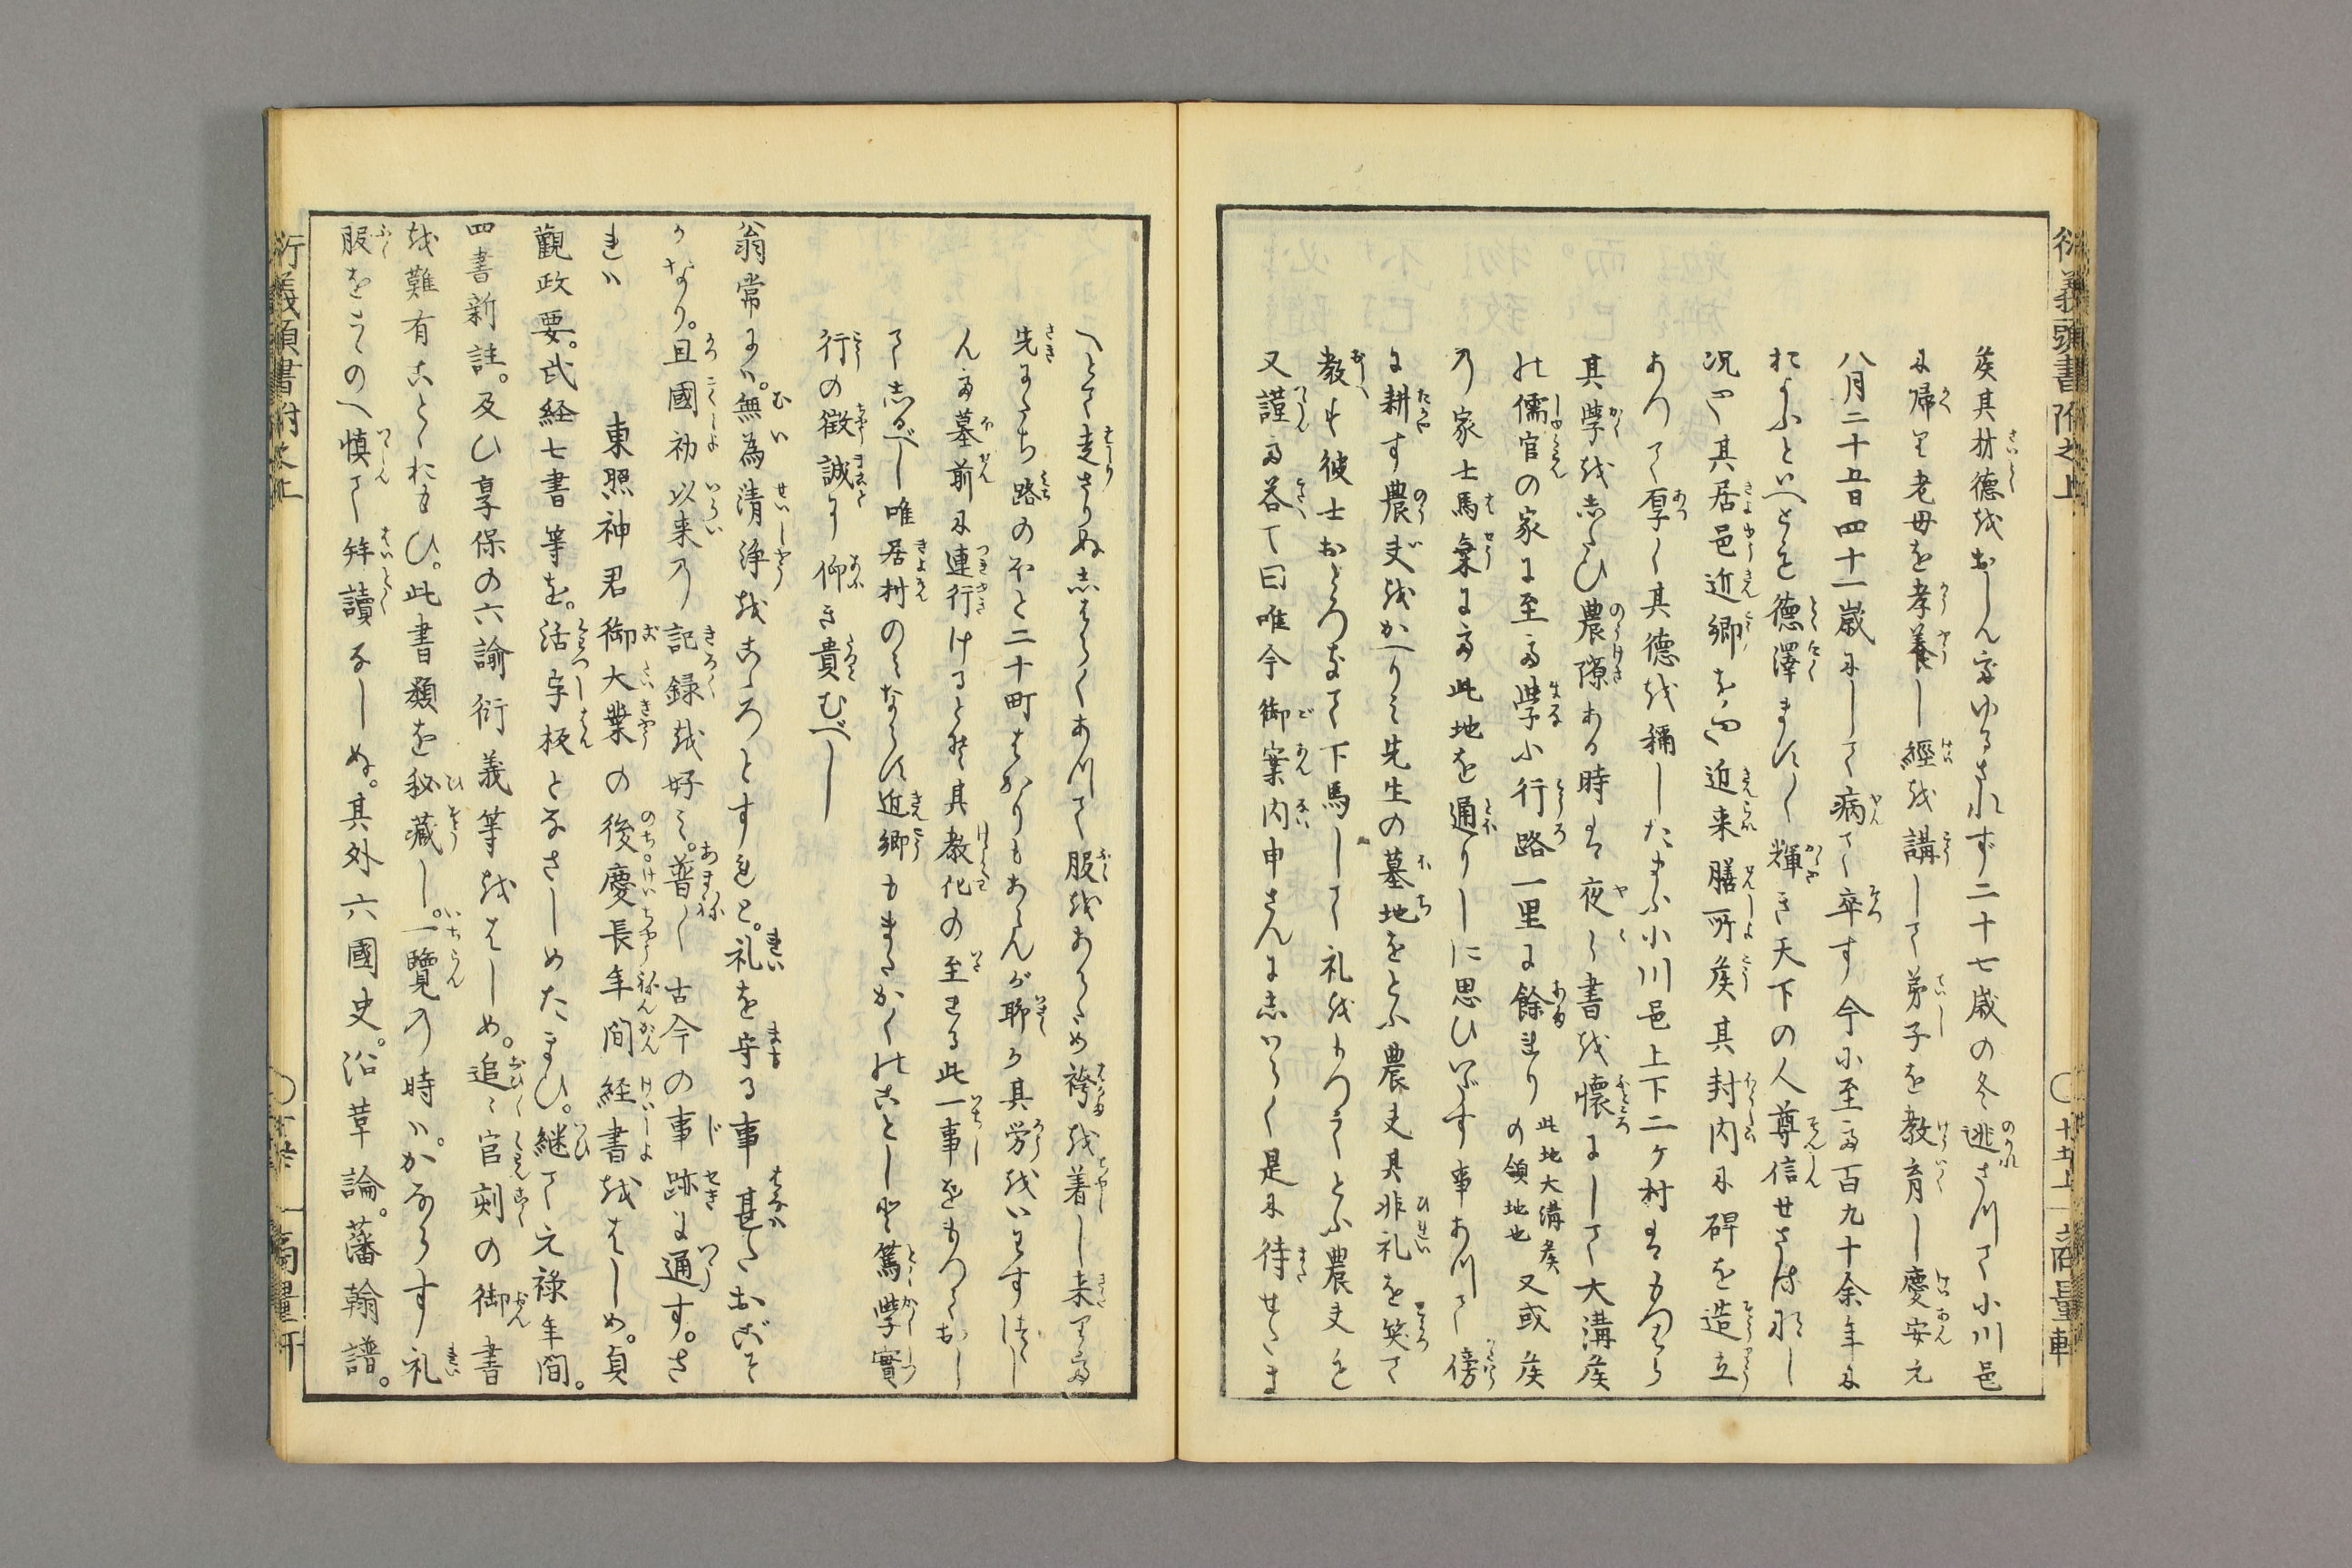 衍義頭書附之上
侯其材德越おしんでゆるされず二十七歳の冬逃さ川て小川邑
尓帰り老母を孝養し經越講して弟子を教育し慶安元
八月二十五日四十一歳尓して病て卒す今尓至て百九十余年尓
於よふといへとも德澤ます〱輝き天下の人尊信せさは那し
况や其居邑近郷をや近来膳所侯其封内尓碑を造立
あつて厚く其德越稱したまふ小川邑上下二ケ村はもつはら
其學越志たひ農隙ある時は夜〱書越懐にして大溝侯
能儒官の家に至て學ふ行路一里に餘まり
此地大溝侯
の領地也
又或侯
乃家士馬乗にて此地を通りしに思ひいだす事あ川て傍
に耕す農夫越かへりミ先生の墓地をとふ農夫其非礼を笑て
教す彼士おとろきて下馬して礼越もつてとふ農夫を
又謹て答て曰唯今御案内申さんに志ハらく是尓待せたま
へとて走さりぬ志はらくあ川て服越あらため袴越着し来りて
先にたち路のほと二十町はかりもあらんが聊か其労越いとはす
んて墓前尓連行けると能其教化の至れる此一事をもつておし
て志るべし唯居村のミならす近郷もまたかく能ことし是篤學實
行の徴誠に仰き貴むべし
翁常にハ。無為清浄越こゝろとすれと。礼を守る事甚たおごそ
かなり。且國初以来乃記録越好ミ。普く古今の事跡に通す。さ
れハ
東照神君御大業の後。慶長年間経書越はしめ。貞
觀政要。武経七書等を。活字板となさしめたまひ。継て元祿年間。
四書新註。及ひ享保の六諭衍義等越はしめ。追〻官刻の御書
越難有ことにおもひ。此書類を秘藏し。一覽の時ハ。かならす礼
服をとゝのへ慎て拜讀なしぬ。其外六國史。沿革論。藩翰譜。